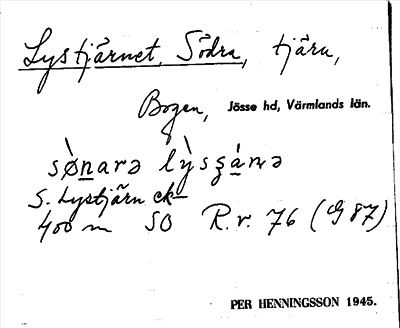 Lystjärnet, Södra, tjärn,
Bogen, Jösse hd, Värmlands län.
sø̀narə lỳsʂánə
S. Lystjärn ek
400 m SO R.v. 76 (G 87)
PER HENNINGSSON 1945.